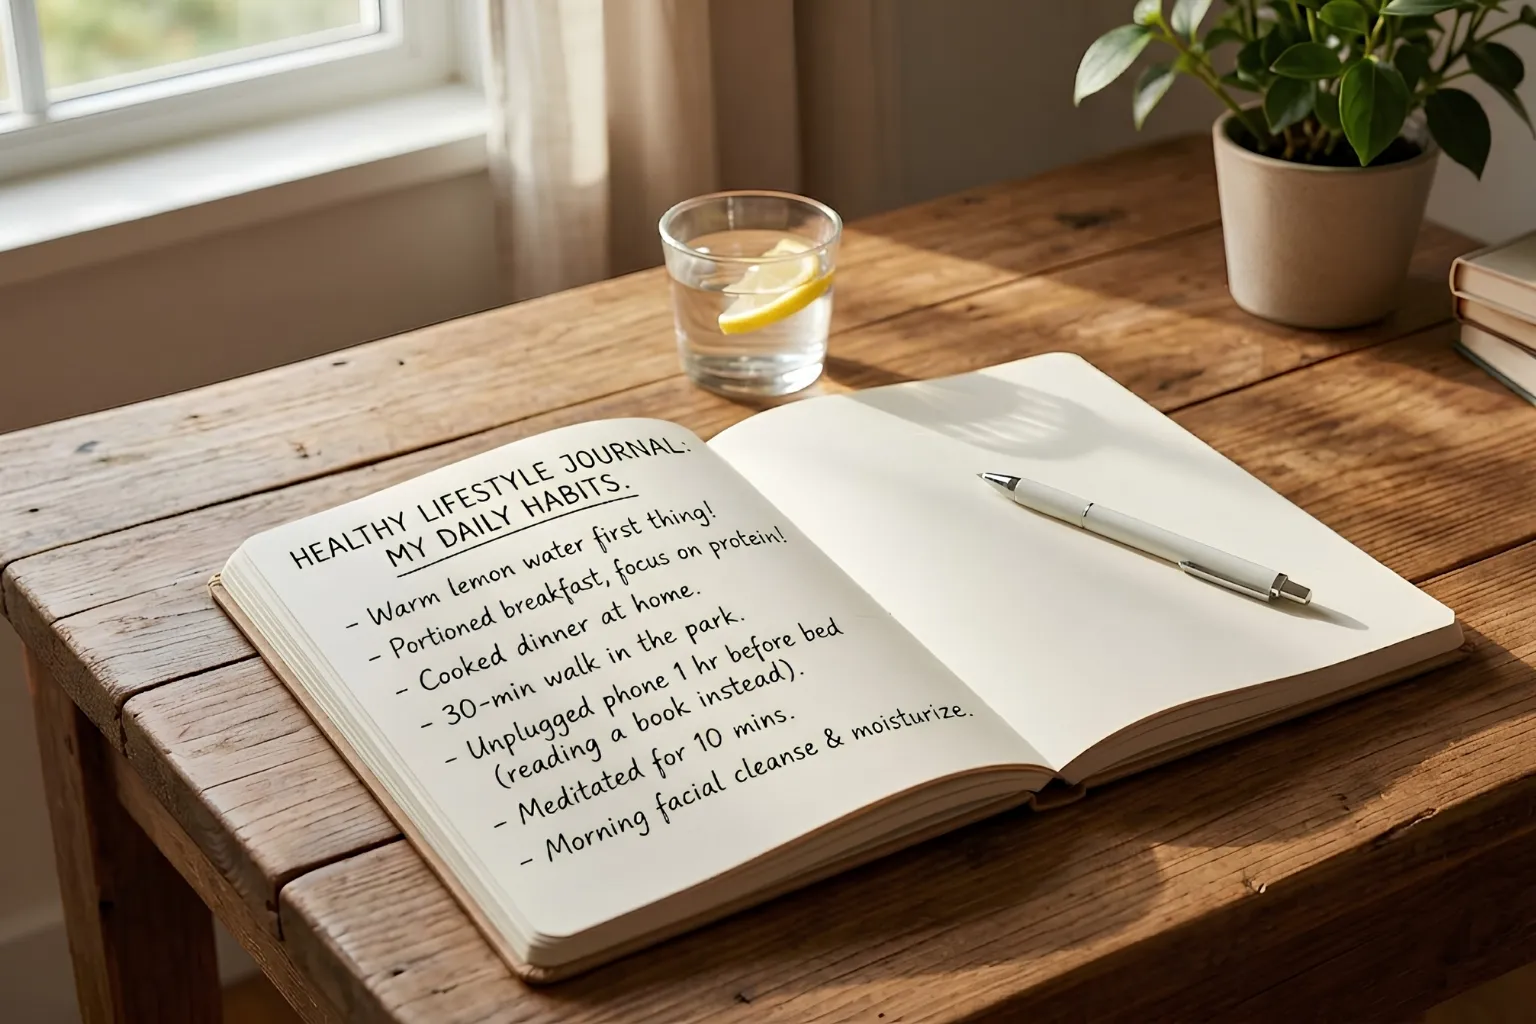 HEALTHY LIFESTYLE JOURNAL:
MY DAILY HABITS.
- Warm lemon water first thing!
- Portioned breakfast, focus on protein!
- Cooked dinner at home.
- 30-min walk in the park.
- Unplugged phone 1 hr before bed
(reading a book instead).
- Meditated for 10 mins.
- Morning facial cleanse & moisturize.